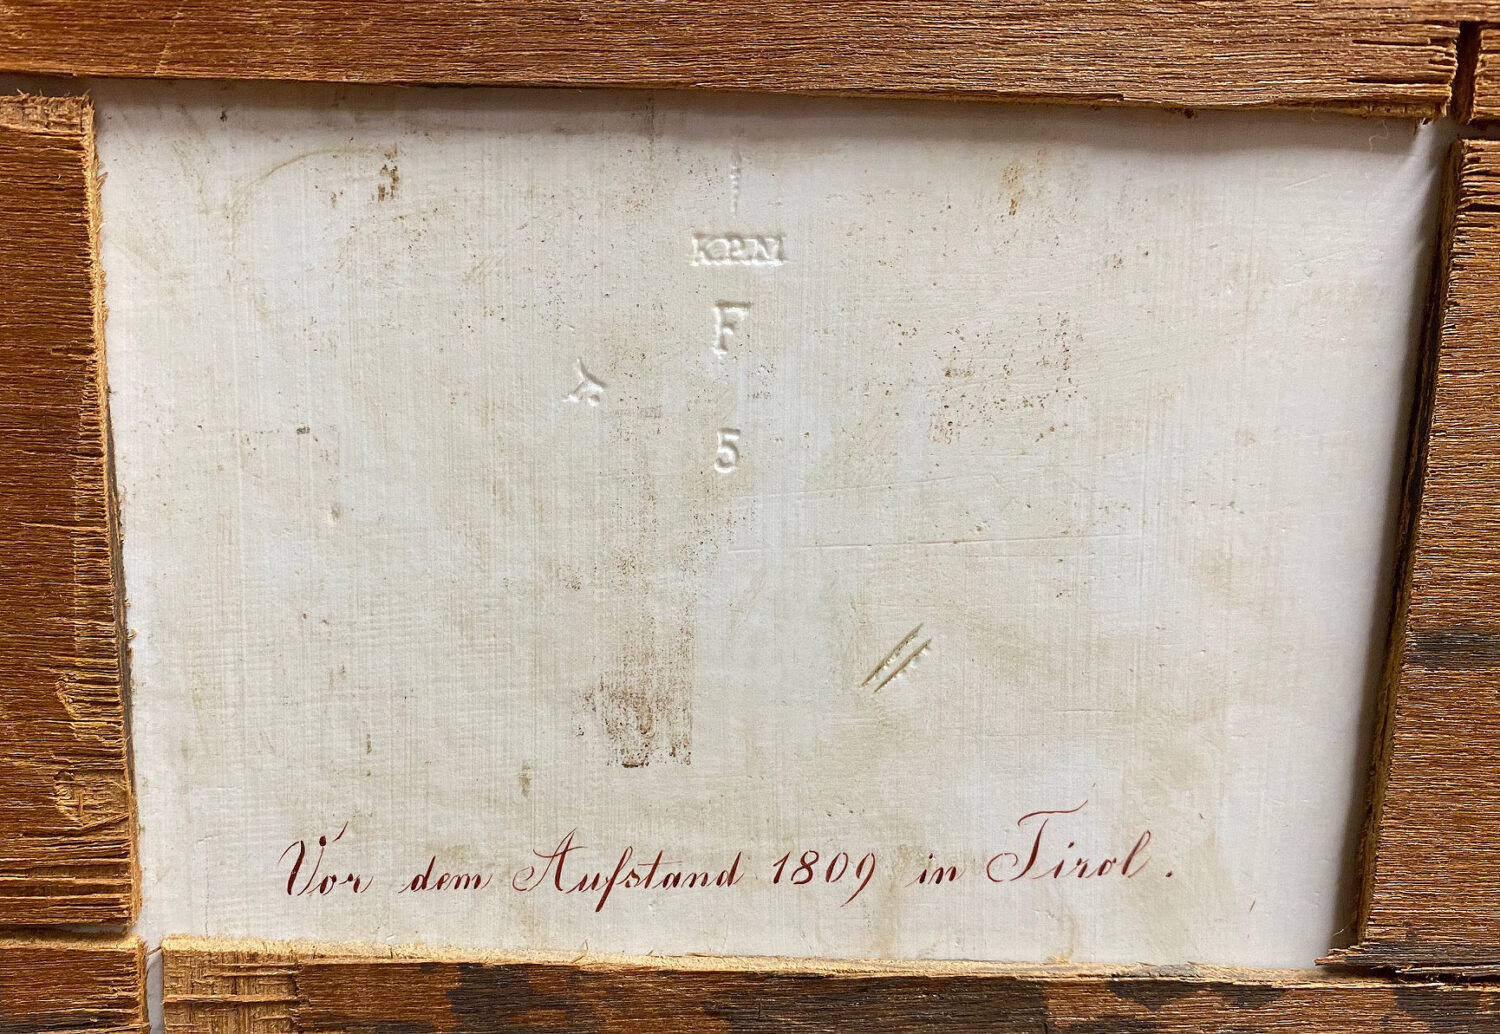 K.P.M
F
5
Vor dem Aufstand 1809 in Tirol.